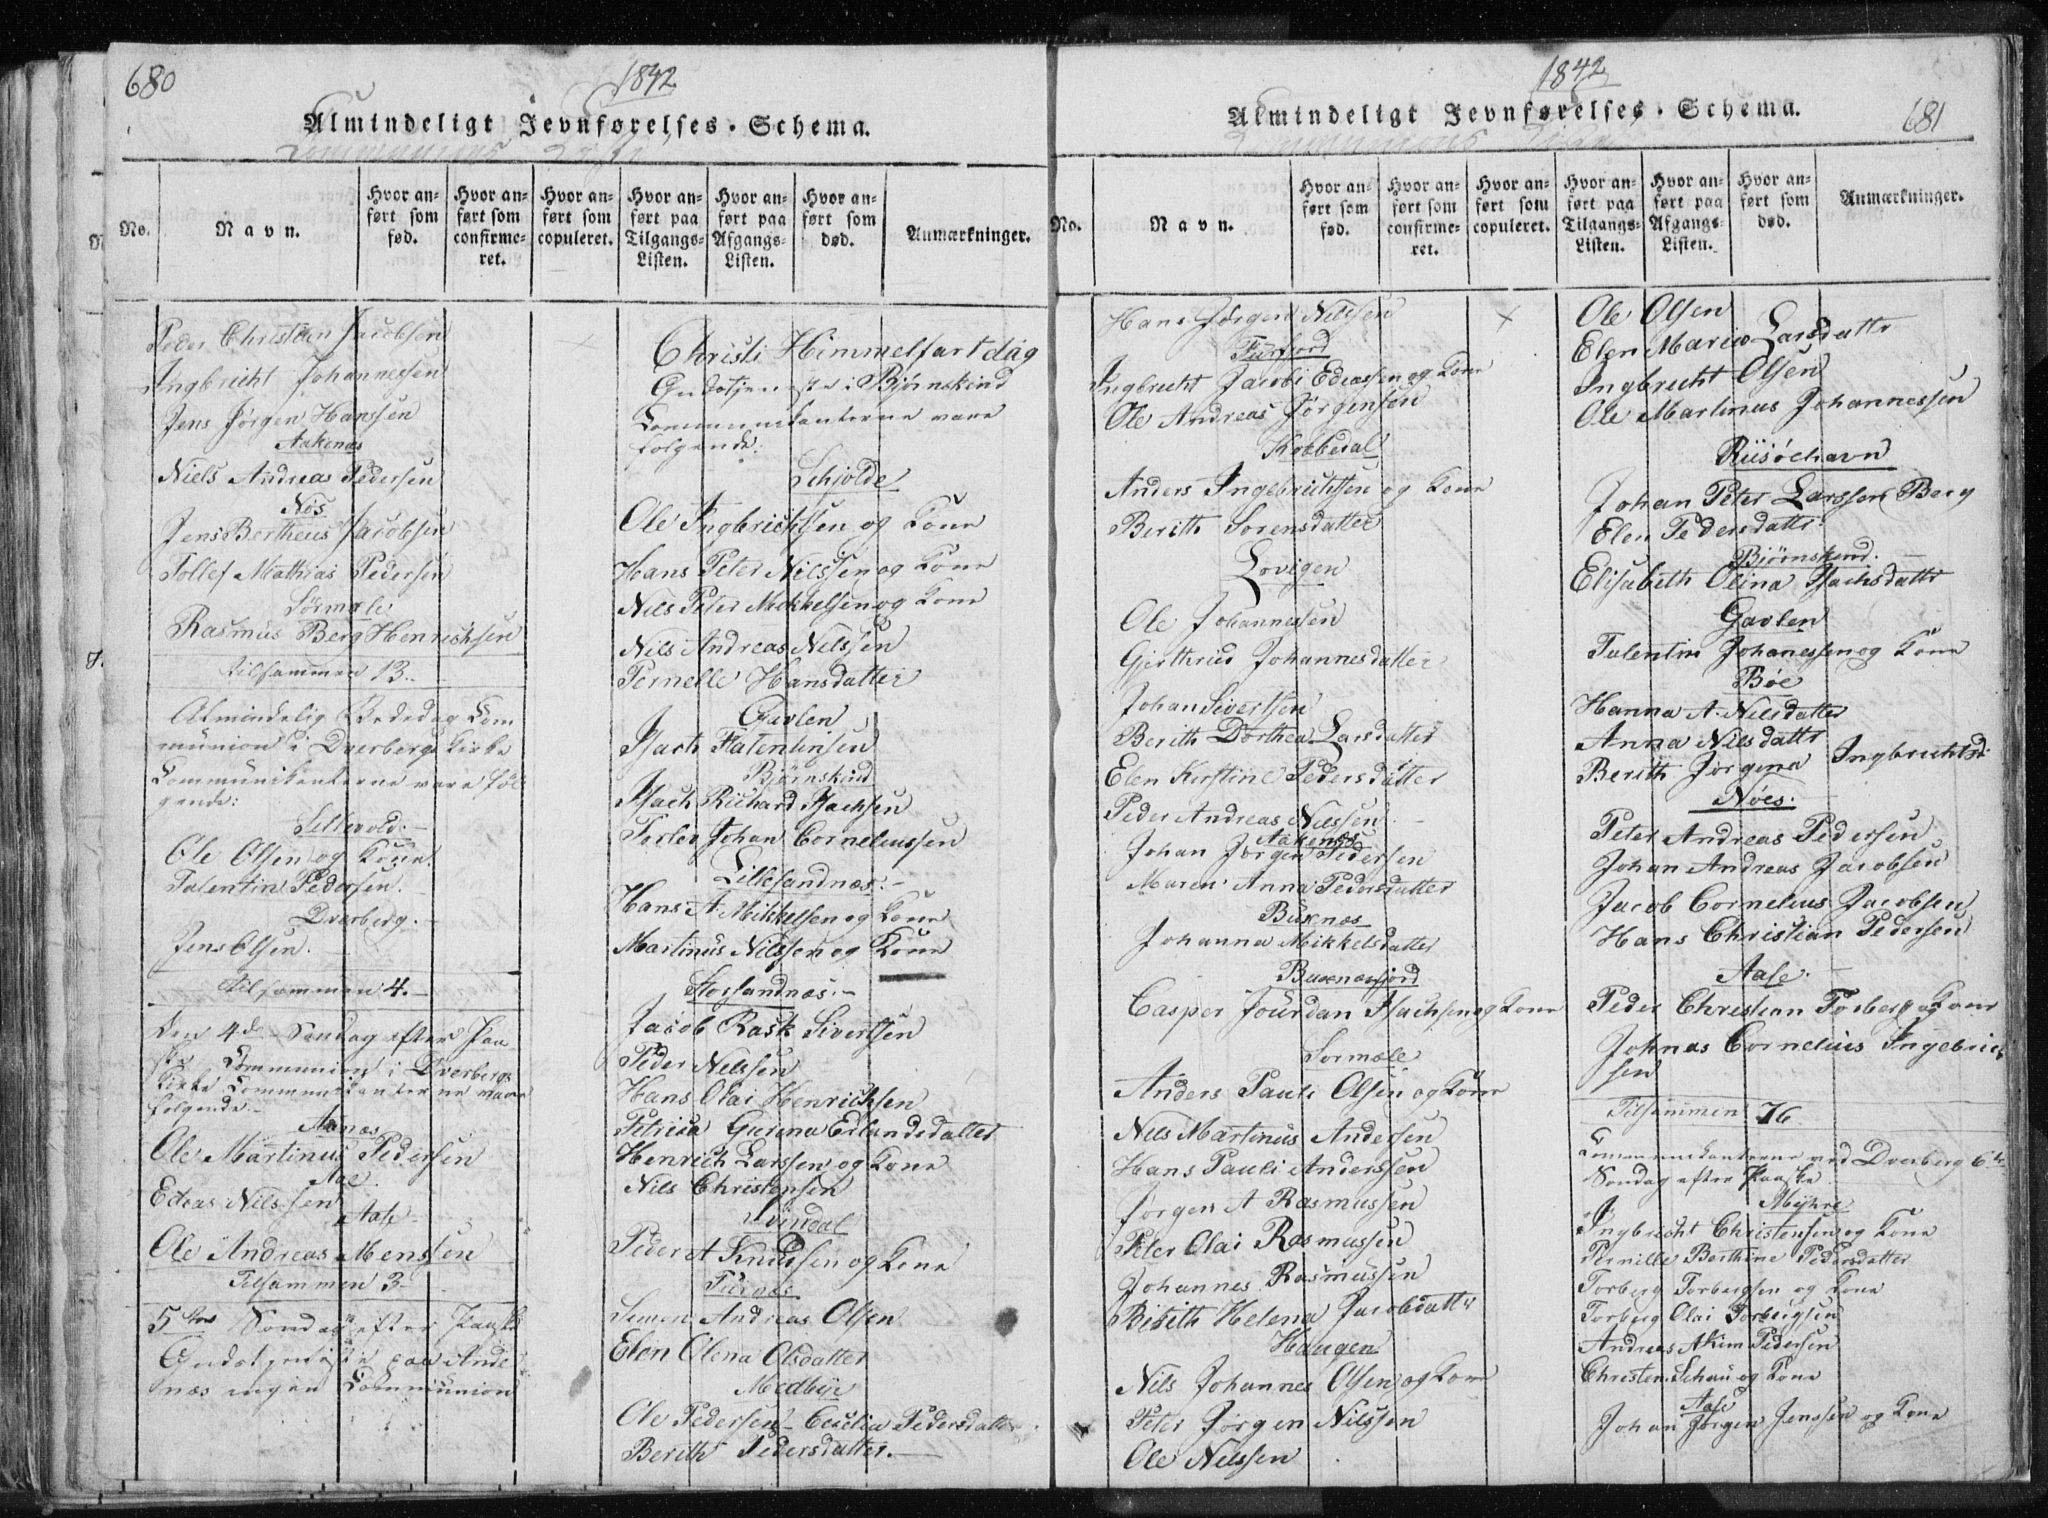 680
1842
Almindeligt Jevnførelses-Schema.
Communions Liste
No.
Navn.
Hvor anført som fød.
Hvor anført som confirmeret.
Hvor anført som copuleret.
Hvor anført paa Tilgangs-Listen.
Hvor anført paa Afgangs-Listen.
Hvor anført som død.
Anmærkninger.
Peder Christian Jacobsen
Ingbricht Johannessen
Jens Jørgen Hanssen
Aakenæs
Niels Andreas Pedersen
Nøs
Jens Bertheus Jacobsen
Tollef Mathias Pedersen
Sørmæle
Rasmus Berg Henrichsen
tilsammen 13.
Almindelig Bededag Com
munion i Dverbergs Kirke
Communikanterne vare føl
gende:
Sellevold:
Ole Olsen og Kone
Talentin Pedersen.
Dverberg.
Jens Olsen.
tilsammen 4.
Den 4de Søndag efter Paa
ske Communion i Dverbergs
Kirke Communikanterne vare
følgende
Aanæs
Ole Martinus Pedersen
Aae.
Edeas Nilssen
Aase
Ole Andreas Menssen
Tilsammen 3
5te Søndag efter Paaske
Gudstjeneste paa Ande
næs ingen Communion
Christi Himmelfart dag
Gudstjeneste i Bjørnskind
Communikanterne vare
følgende:
Schjolde
Ole Ingbrichtsen og Kone
Hans Peter Nilssen og Kone
Nils Peter Mikkelsen og Kone
Nils Andreas Nilssen
Pernelle Hansdatter
Gavlen
Isach Falentinsen
Bjørnskind
Isach Richard Isachsen
Torlev Johan Corneliussen
Lillesandnæs:
Hans A Mikkelsen og Kone
Martinus Nilssen og Kone
Storsandnæs:
Jacob Rask Sivertsen
Peder Nilssen
Hans Olai Henrichsen
Petrica Gurina Erlandsdatter
Henrich Larssen og Kone
Nils Christensen
Svindal
Peder A Knudsen og Kone
Turnæs
Simen Andreas Olsen
Elen Olena Olsdatter
Medbye
Ole Pedersen Cecelia Pedersdatter
Berith Pedersdatter.
1842
Almindeligt Jevnførelses-Schema.
681
Communions Liste
No.
Navn.
Hvor anført som fød.
Hvor anført som confirmeret.
Hvor anført som copuleret.
Hvor anført paa Tilgangs-Listen.
Hvor anført paa Afgangs-Listen.
Hvor anført som død.
Anmærkninger.
Hans Jørgen Nilssen
Forfjord
Ingbricht Jacobi Edeassen og Kone
Ole Andreas Jørgensen
Kobbedal
Anders Ingebrichtsen og Kone
Berith Sørensdatter
Lovigen
Ole Johannessen
Gjerthrud Johannesdatter
Johan Sivertsen
Berith Dorthea Larsdatter
Elen Kirstine Pedersdatter
Peder Andreas Nilssen
Aakenæs
Johan Jørgen Pedersen
Maren Anna Pedersdatter
Buxnæs
Johanna Mikkelsdatter
Buxnæsfjord
Casper Jourdan Isachsen og Kone
Sormæle
Anders Pauli Olsen og Kone
Nils Martinus Andersen
Hans Pauli Anderssen
Jørgen A Rasmussen
Peter Olai Rasmussen
Johannes Rasmussen
Birith Helena Jacobsdatter
Haugen
Nils Johannes Olsen og Kone
Peter Jørgen Nilssen
Ole Nilssen
Ole Olsen
Elen Maria Larsdatter
Ingbricht Olsen
Ole Martinus Johannessen
Riisøehavn
Johan Peter Larssen Berg
Elen Pedersdatter
Bjørnskind.
Elisabeth Olina Isachsdatter
Gavlen
Talentin Johanessen og Kone
Bøe
Hanna A. Nilsdatter
Anna Nilsdatter
Berith Jørgena Ingbrichtsd:
Nöes.
Peter Andreas Pedersen
Johan Andreas Jacobsen
Jacob Cornelius Jacobsen
Hans Christian Pedersen
Aase.
Peder Christian Torberg og Kone
Johnas Cornelius Ingebricht
sen
Tilsammen 76
Communikanterne ved Dverberg 6te
Søndag efter Paaske
Myhre
Ingbricht Christensen og Kone
Pernille Berthine Pedersdatter
Torberg Torbergsen og Kone
Torberg Olai Torbergsen
Andreas Akim Pedersen
Christen Schau og Kone
Aase
Johan Jørgen Jenssen og Kone